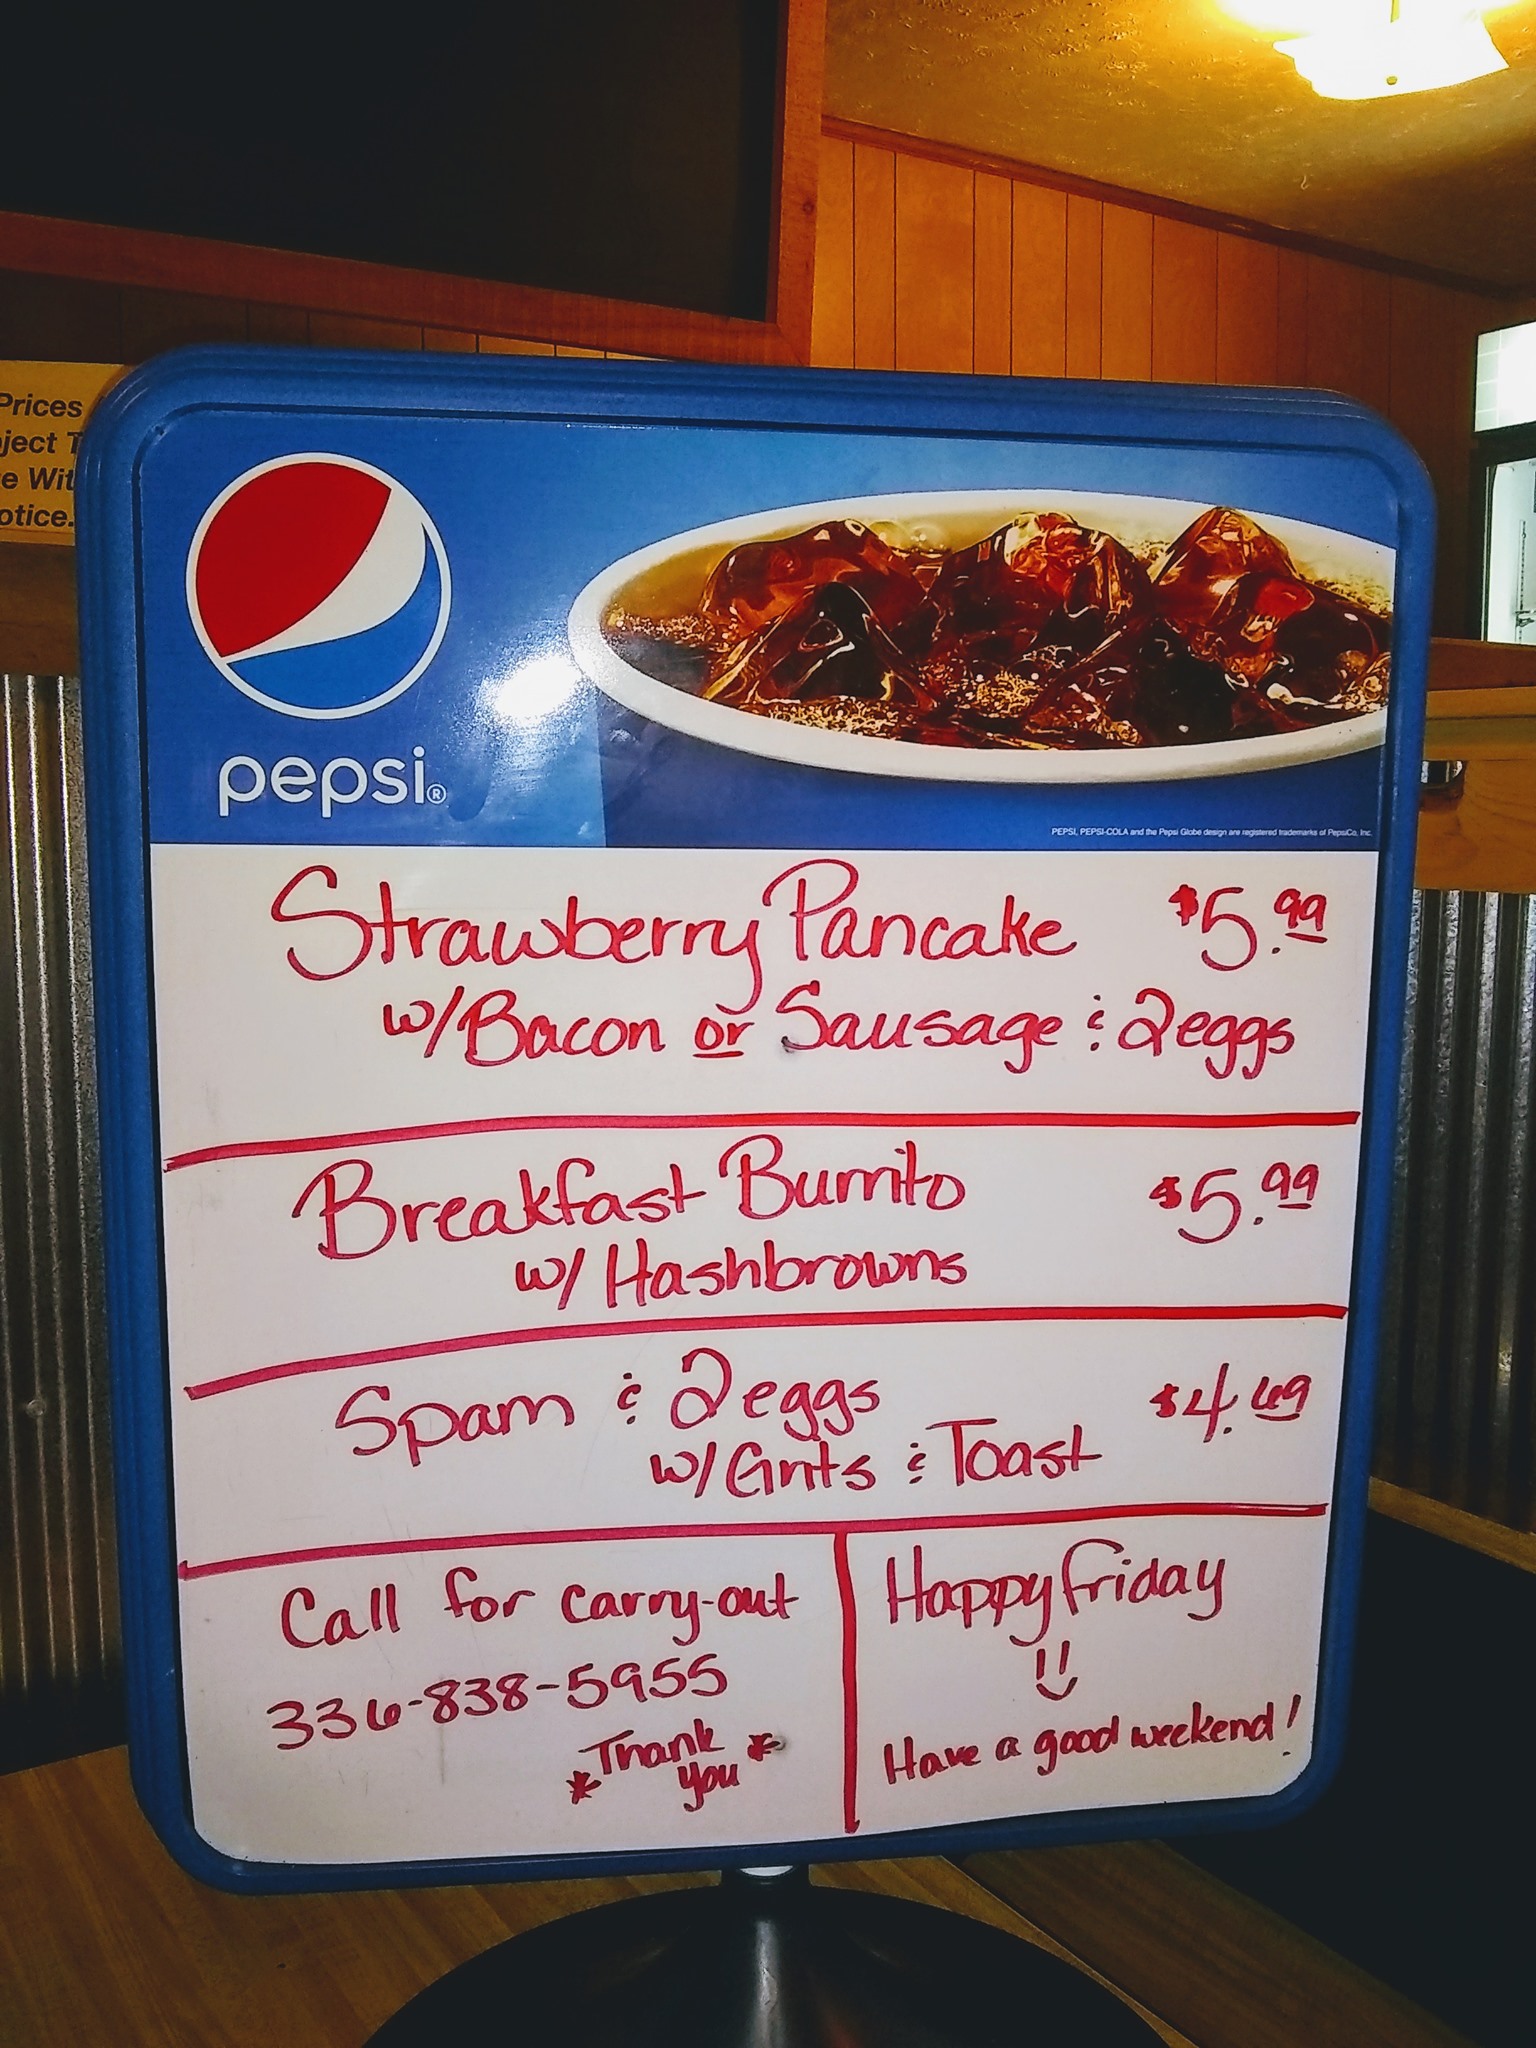 Prices
ject T
e Wit
otice.
pepsi®
PEPSI, PEPSI-COLA and the Pepsi Globe design are registered trademarks of PepsiCo, Inc.
Strawberry Pancake $5.99
w/Bacon or Sausage & 2 eggs
Breakfast Burrito $5.99
w/ Hashbrowns
Spam & 2 eggs $4.69
w/ Grits & Toast
Call for carry-out
336-838-5955
*Thank you*
Happy friday
Have a good weekend!